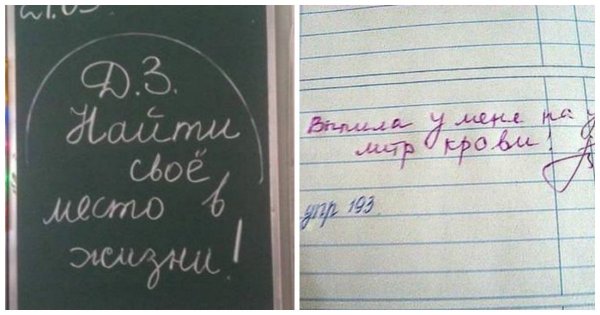 21.05
Д.З.
Найти
своё
место в
жизни!
Выпила у меня на у
литр крови!
упр 193.